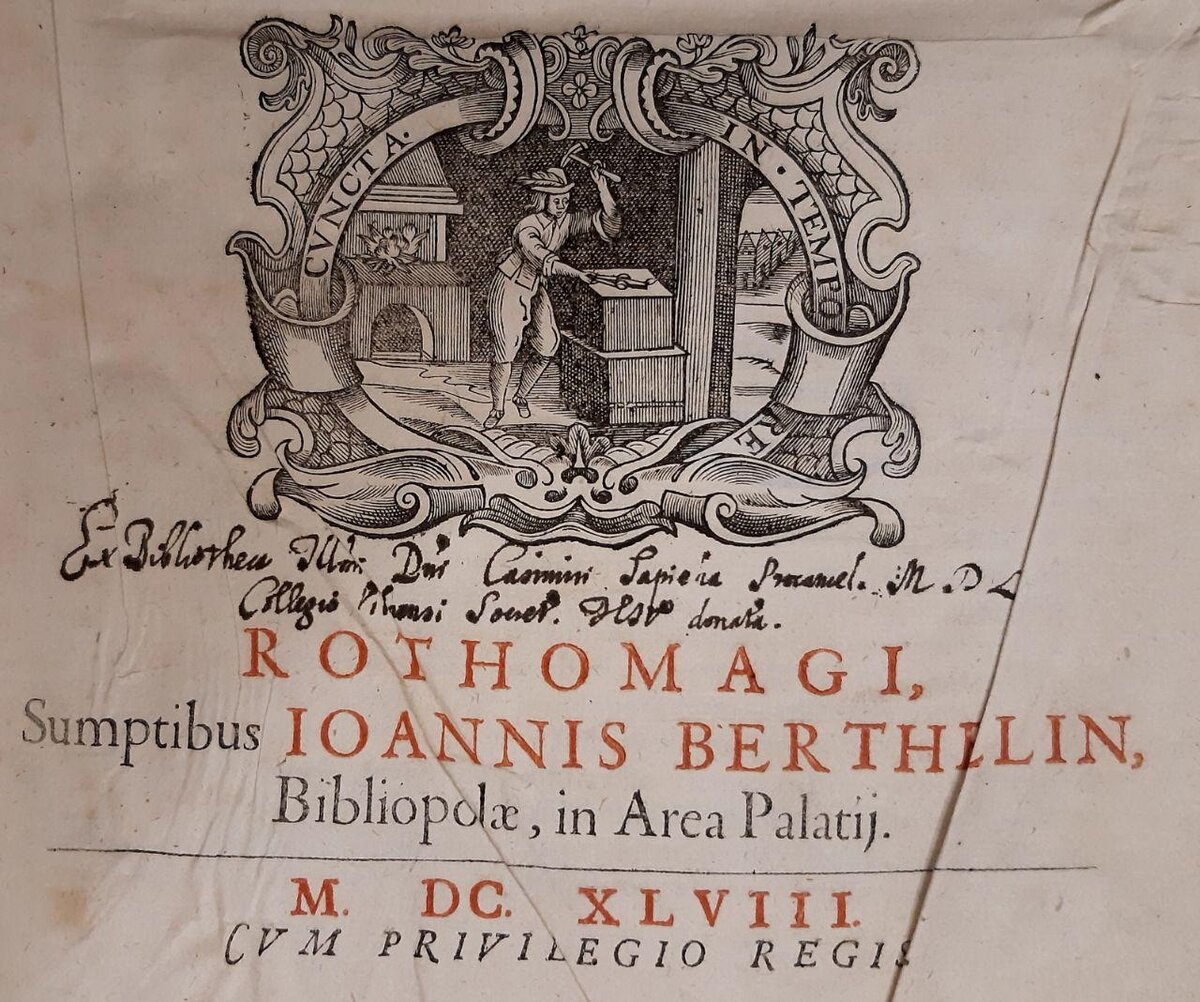 CVNCTA. IN • TEMPORE
Ex Bibliotheca Illmi Dni Casimiri Sapieha Procancel. M D L
Collegio Vilnensi Societ. IESV donata.
ROTHOMAGI,
Sumptibus IOANNIS BERTHELIN,
Bibliopolæ, in Area Palatij.
M. DC. XLVIII.
CVM PRIVILEGIO REGIS